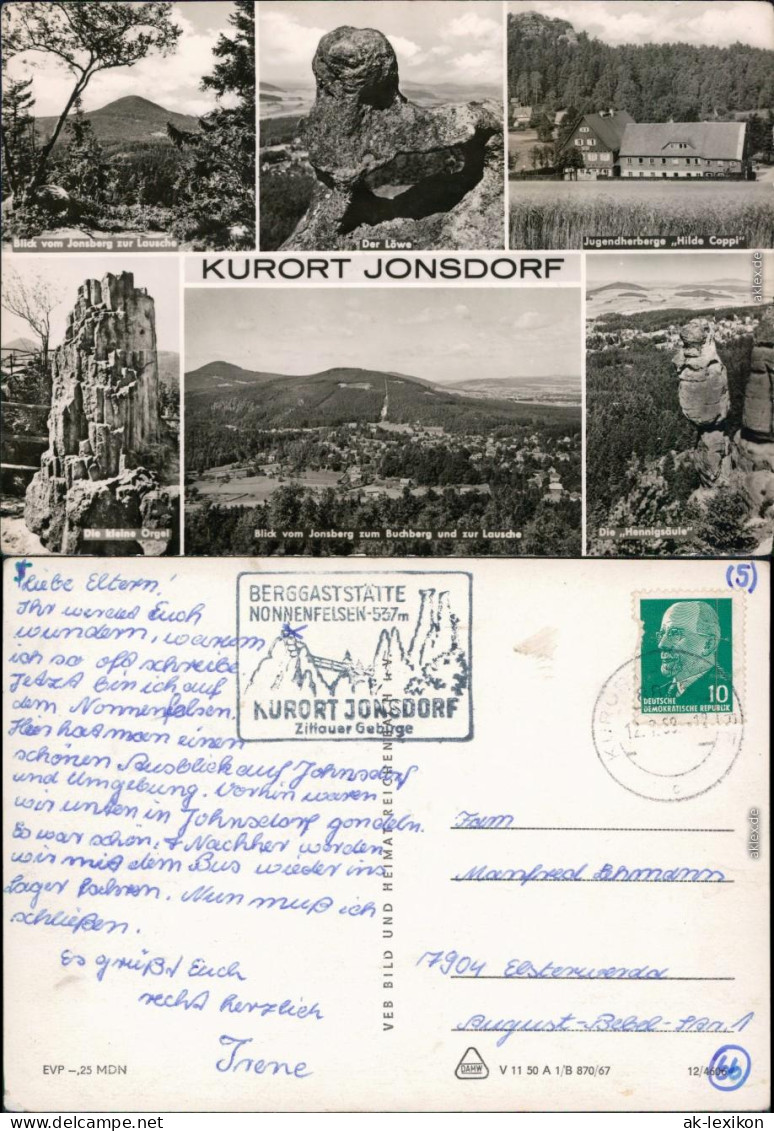 Blick vom Jonsberg zur Lausche
Der Löwe
Jugendherberge „Hilde Coppi"
KURORT JONSDORF
Die kleine Orgel
Blick vom Jonsberg zum Buchberg und zur Lausche
Die „Hennigsäule"
aklex.de
(5)
Liebe Eltern!
Ihr werdet Euch
wundern, warum
ich so oft schreibe
Jetzt bin ich auf
dem Nonnenfelsen.
Hier hat man einen
schönen Ausblick auf Johnsdorf
und Umgebung. Vorhin waren
wir unten in Johnsdorf gondeln.
Es war schön. Nachher werden
wir mit dem Bus wieder ins
Lager fahren. Nun muß ich
schließen.
Es grüßt Euch
recht herzlich
Irene
BERGGASTSTÄTTE
NONNENFELSEN-537m
KURORT JONSDORF
Zittauer Gebirge
10
DEUTSCHE
DEMOKRATISCHE REPUBLIK
VEB BILD UND HEIMAT REICHENBACH i. V.
Fam
Manfred Lehmann
7904 Elsterwerda
August-Bebel-Str. 1
aklex.de
EVP –,25 MDN
DAHW
V 11 50 A 1/B 870/67
ak-lexikon.com